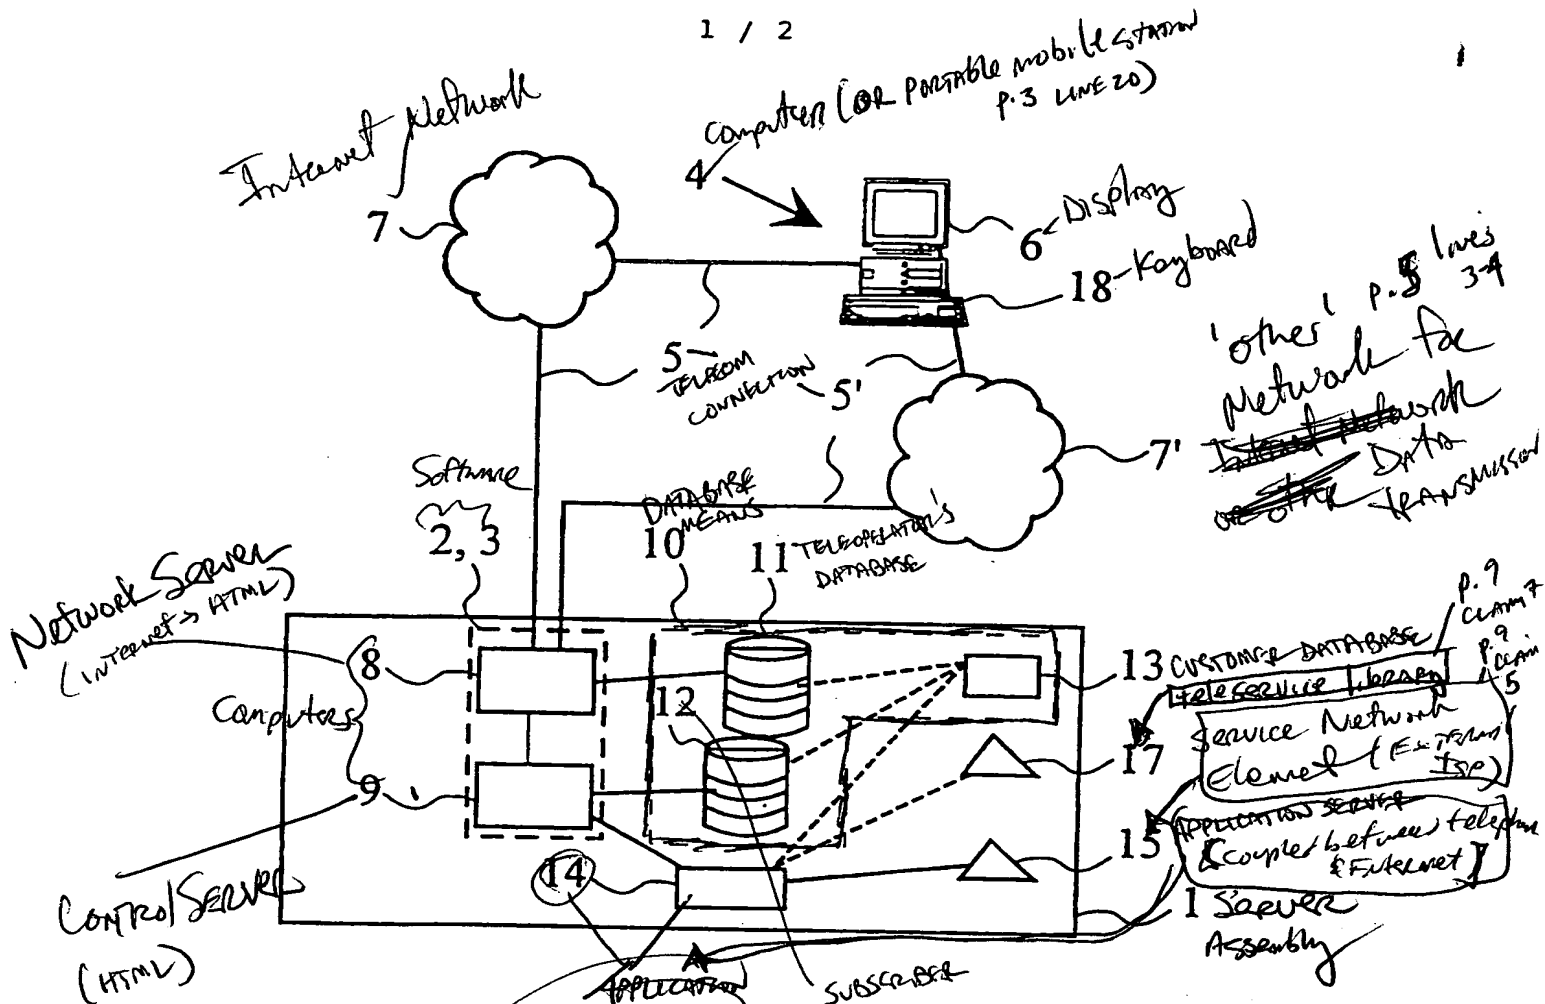 1 / 2
Internet Network
7
Computer (OR PORTABLE mobile STATION
P.3 LINE 20)
4
6
Display
18 - Keyboard
'other' p.5 lines
3-4
Network for
Data
TRANSMISSION
7'
5
TELECOM
CONNECTION
5'
Software
2, 3
DATABASE
MEANS
10
11
TELEOPERATOR'S
DATABASE
Network Server
(INTERNET → HTML)
8
Computers
9
12
p.9
CLAIM 7
13 CUSTOMER DATABASE
teleservice library
p.9
CLAIM
5
17
Service Network
Element (EXTERNAL
ISP)
15
APPLICATION SERVER
(coupled between telephone
& Internet)
14
1 Server
Assembly
Control Server
(HTML)
APPLICATION
SUBSCRIBER